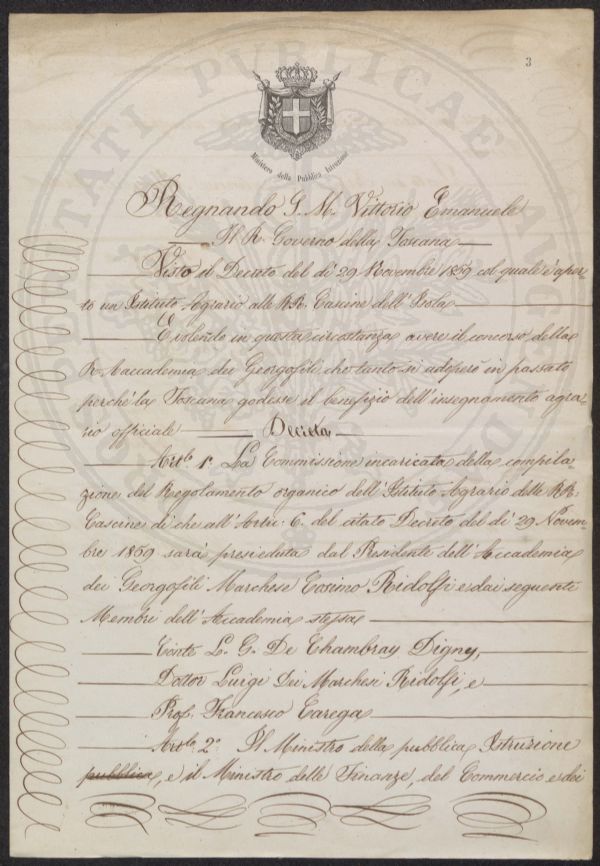 3
Ministero della Pubblica Istruzione
Regnando S. M. Vittorio Emanuele
Il R. Governo della Toscana
Visto il Decreto del dì 29 Novembre 1859 col quale è aper-
to un Istituto Agrario alle RR. Cascine dell'Isola
E volendo in questa circostanza avere il concorso della
R. Accademia dei Georgofili che tanto si adoperò in passato
perchè la Toscana godesse il benefizio dell'insegnamento agra-
rio officiale Decreta
Artlo. 1º. La Commissione incaricata della compila-
zione del Regolamento organico dell'Istituto Agrario delle RR.
Cascine di che all'Artic: 6. del citato Decreto del dì 29 Novem-
bre 1859 sarà presieduta dal Presidente dell'Accademia
dei Georgofili Marchese Cosimo Ridolfi e dai seguenti
Membri dell'Accademia stessa
Conte L. G. De Chambray Digny,
Dottor Luigi Dei Marchesi Ridolfi, e
Prof. Francesco Carega
Artlo. 2º. Il Ministro della pubblica Istruzione
pubblica, e il Ministro delle Finanze, del Commercio e dei